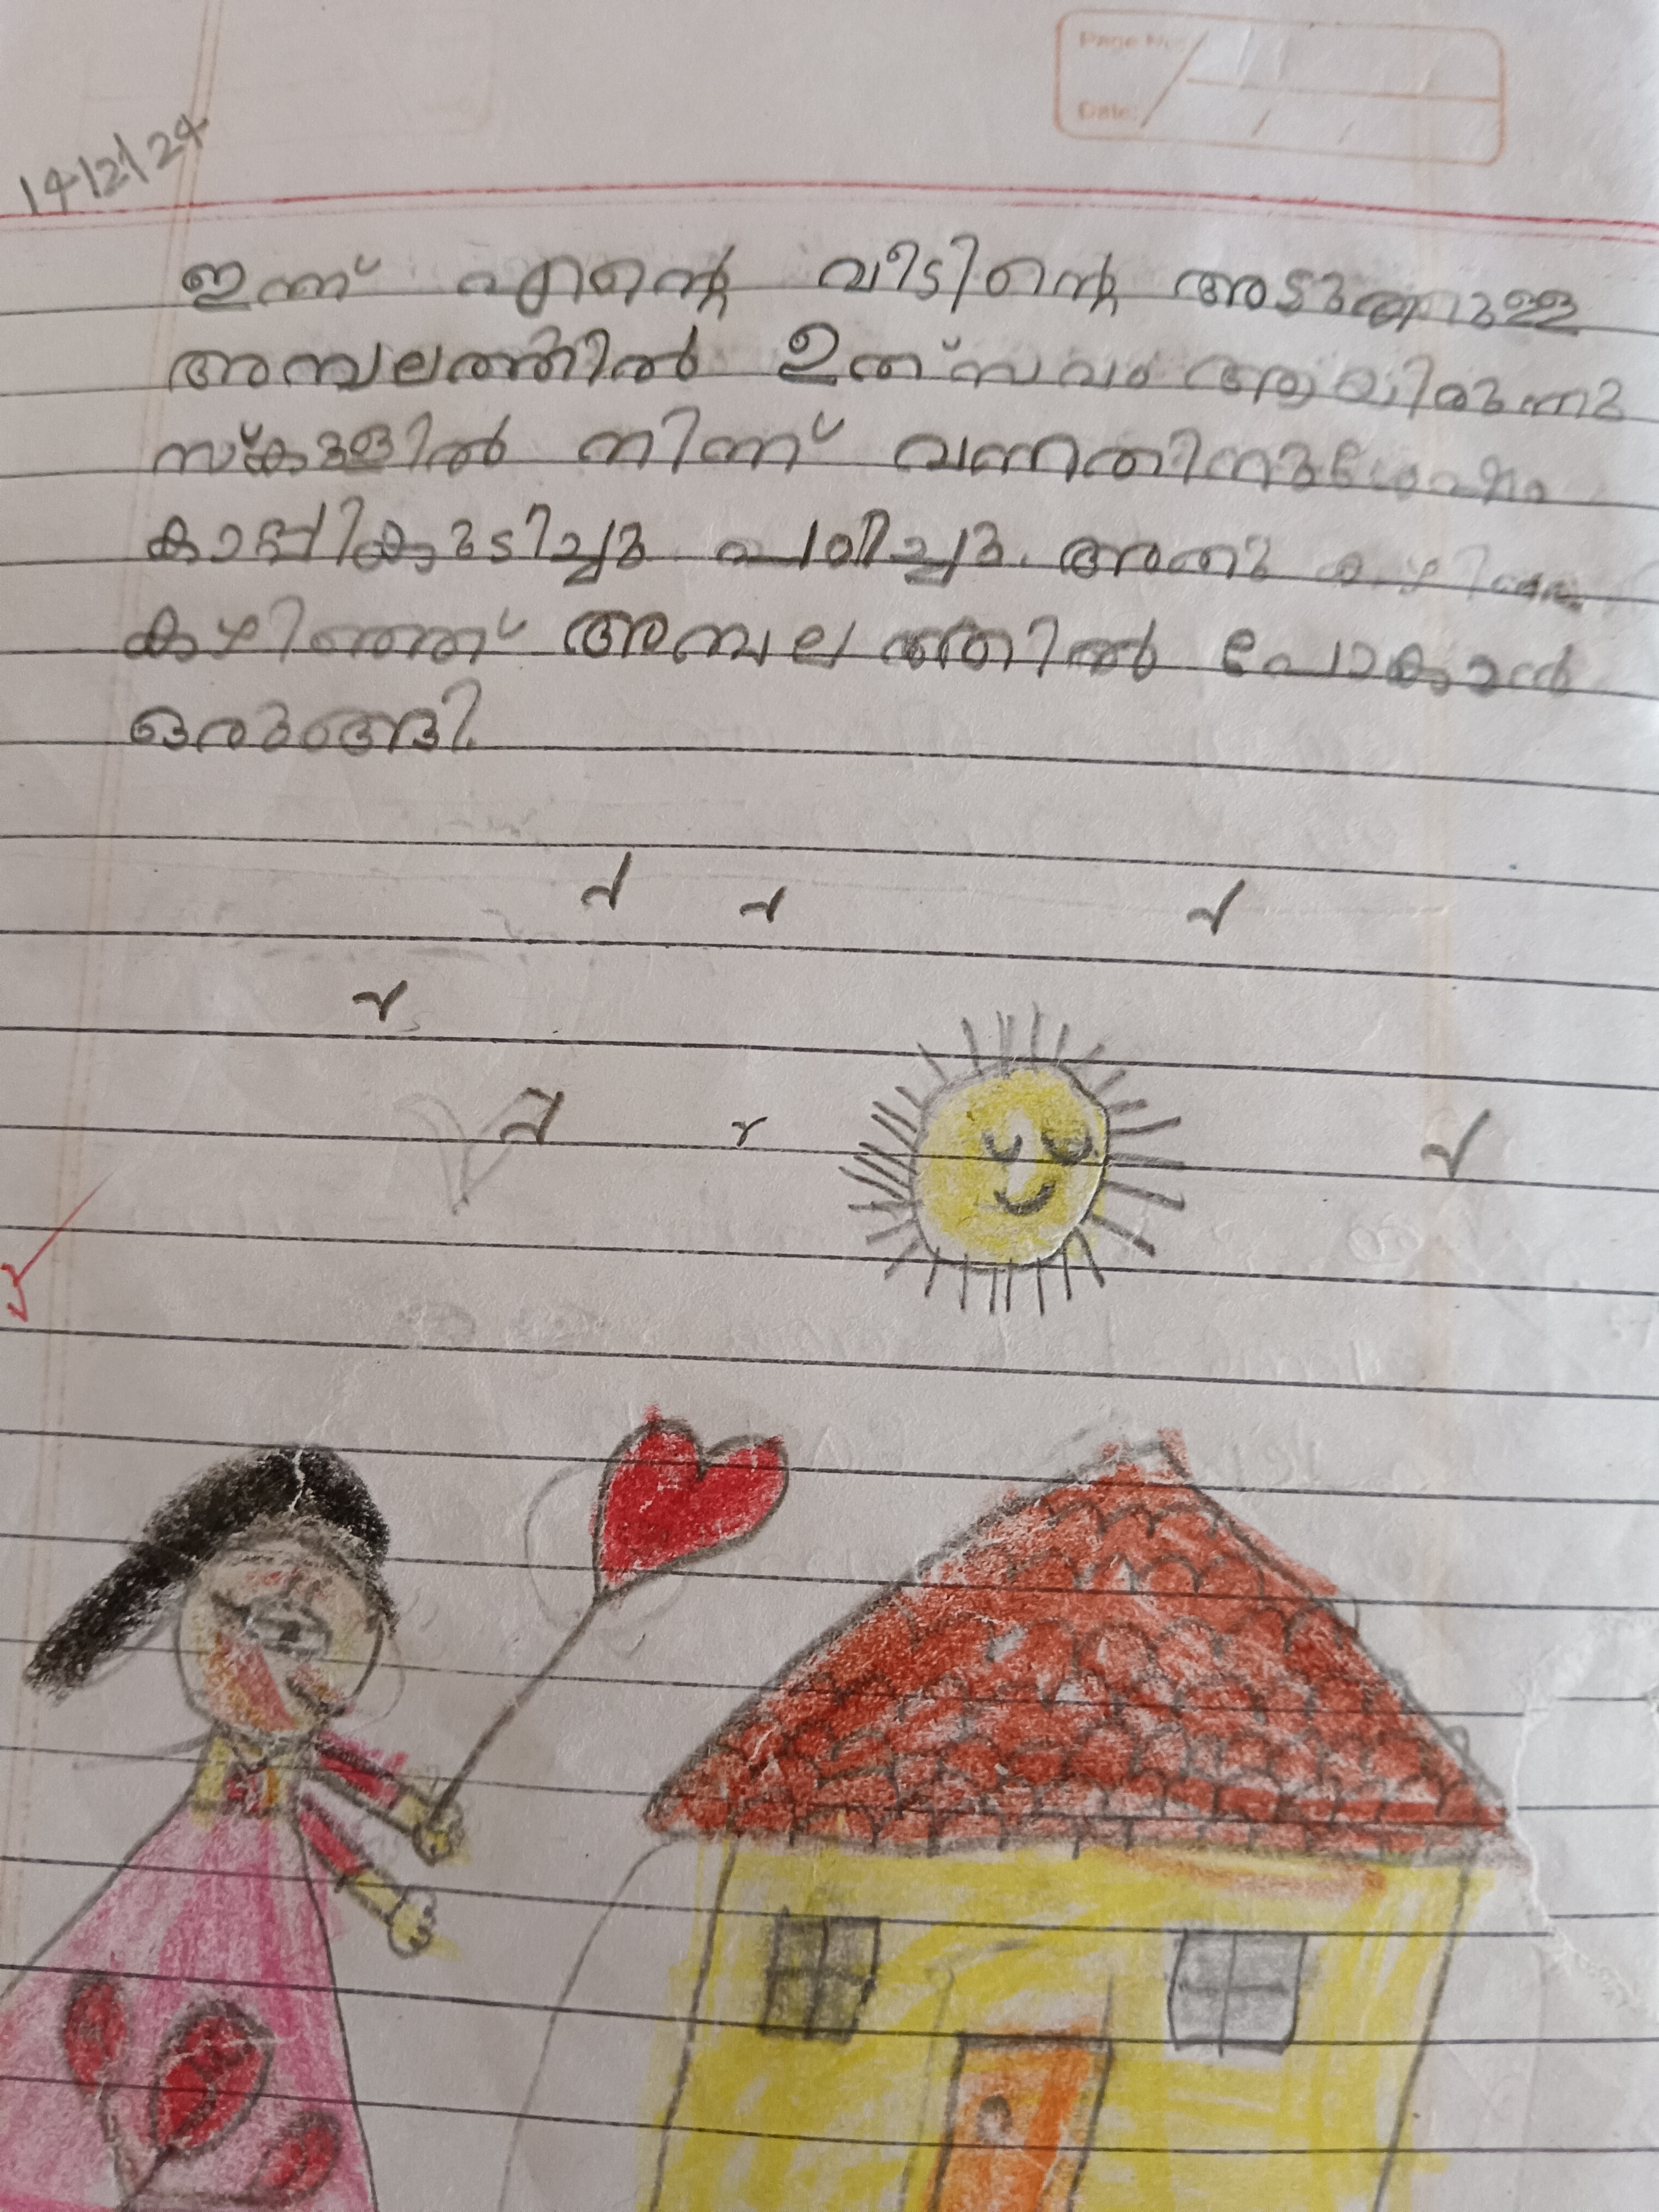 Page No:
Date: / /
14/2/24
ഇന്ന് എന്റെ വീടിന്റെ അടുത്തുള്ള
അമ്പലത്തിൽ ഉത്സവം ആയിരുന്നു
സ്കൂളിൽ നിന്ന് വന്നതിനുശേഷം
കാപ്പികുടിച്ചു പഠിച്ചു. അതു
കഴിഞ്ഞ് അമ്പലത്തിൽ പോകാൻ
ഒരുങ്ങി.